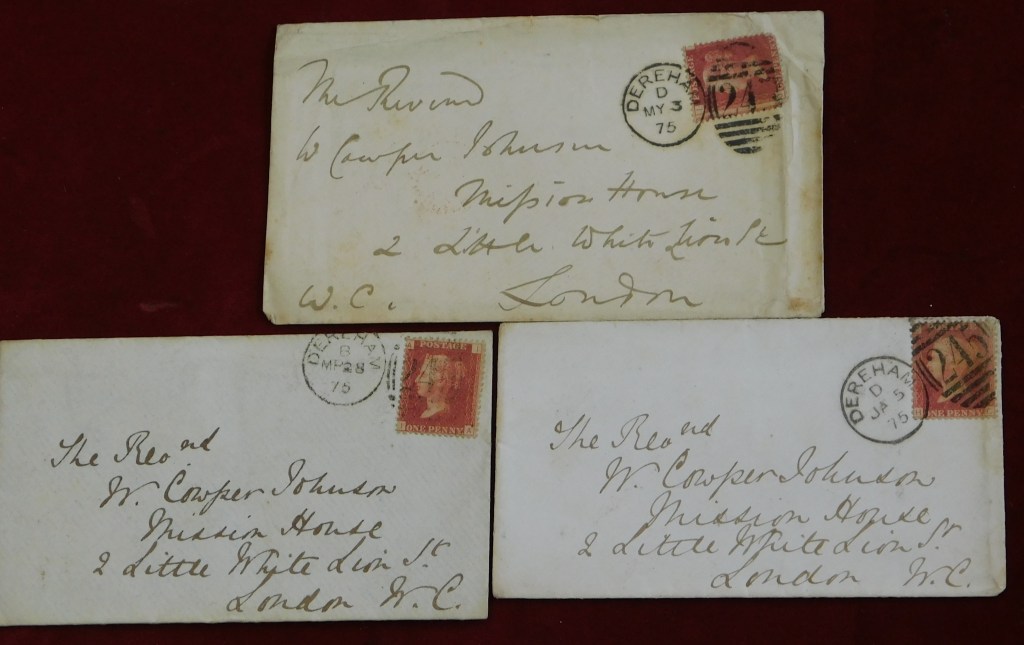 The Revernd
W Cowper Johnson
Mission House
2 Little White Lion St
W.C. London
DEREHAM
D
MY 3
75
24
The Revnd
W. Cowper Johnson
Mission House
2 Little White Lion St
London W.C.
DEREHAM
B
MR 28
75
POSTAGE
ONE PENNY
The Revnd
W. Cowper Johnson
Mission House
2 Little White Lion St
London W.C.
DEREHAM
D
JA 5
75
245
ONE PENNY